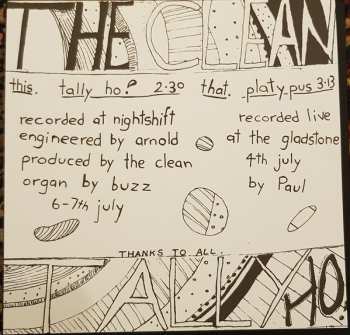 THE CLEAN
this. tally ho? 2.30 that. platypus 3.13
recorded at nightshift
engineered by arnold
produced by the clean
organ by buzz
6-7th july
recorded live
at the gladstone
4th july
by Paul
THANKS TO ALL.
TALLY HO.